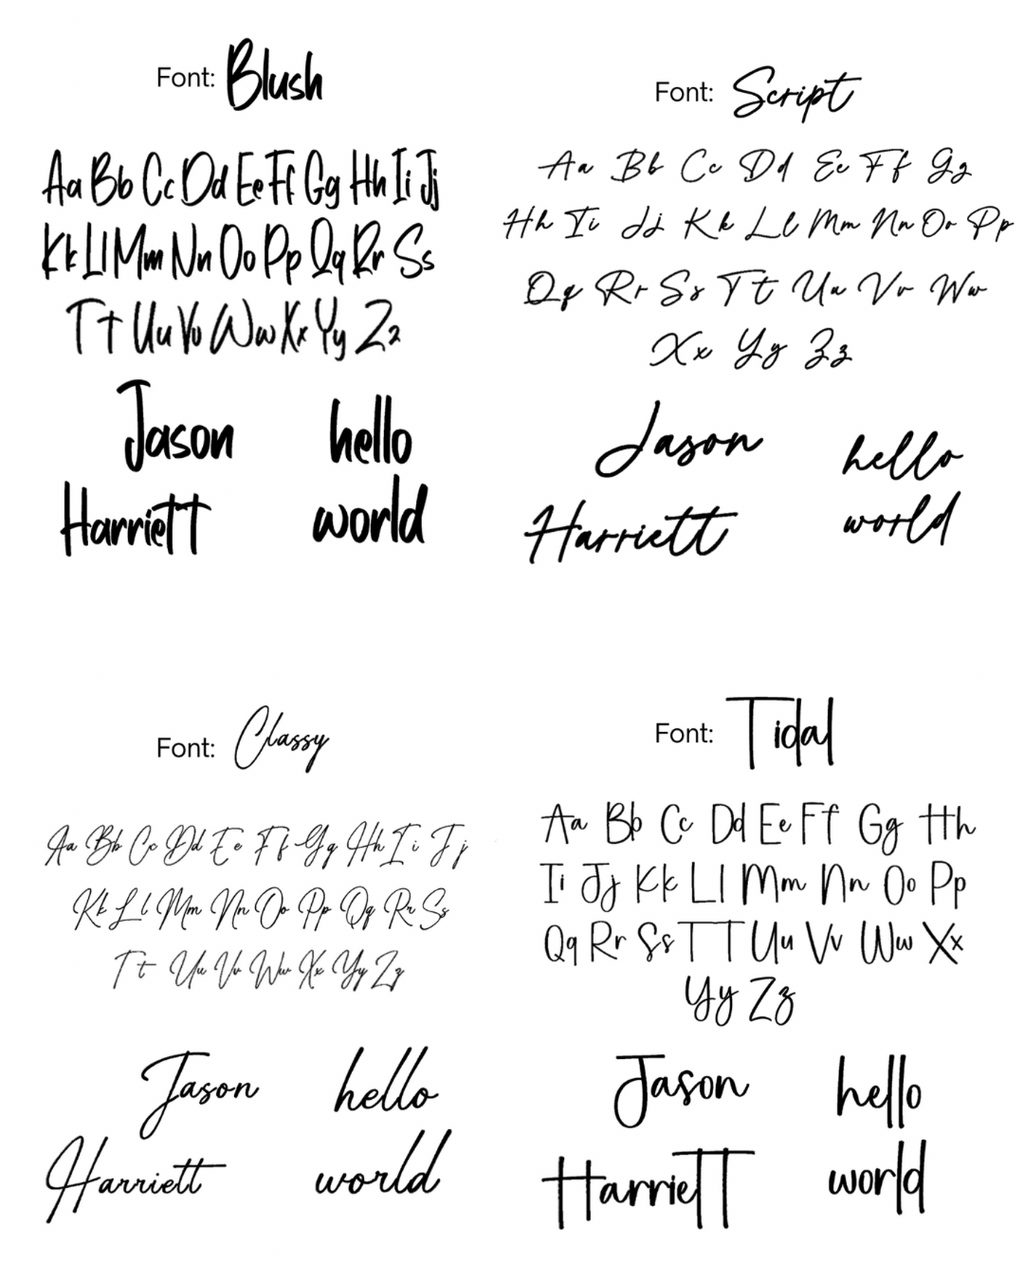 Font: Blush
Aa Bb Cc Dd Ee Ff Gg Hh Ii Jj
Kk Ll Mm Nn Oo Pp Qq Rr Ss
Tt Uu Vv Ww Xx Yy Zz
Jason hello
Harriett world
Font: Script
Aa Bb Cc Dd Ee Ff Gg
Hh Ii Jj Kk Ll Mm Nn Oo Pp
Qq Rr Ss Tt Uu Vv Ww
Xx Yy Zz
Jason hello
Harriett world
Font: Classy
Aa Bb Cc Dd Ee Ff Gg Hh Ii Jj
Kk Ll Mm Nn Oo Pp Qq Rr Ss
Tt Uu Vv Ww Xx Yy Zz
Jason hello
Harriett world
Font: Tidal
Aa Bb Cc Dd Ee Ff Gg Hh
Ii Jj Kk Ll Mm Nn Oo Pp
Qq Rr Ss TT Uu Vv Ww Xx
Yy Zz
Jason hello
Harriett world